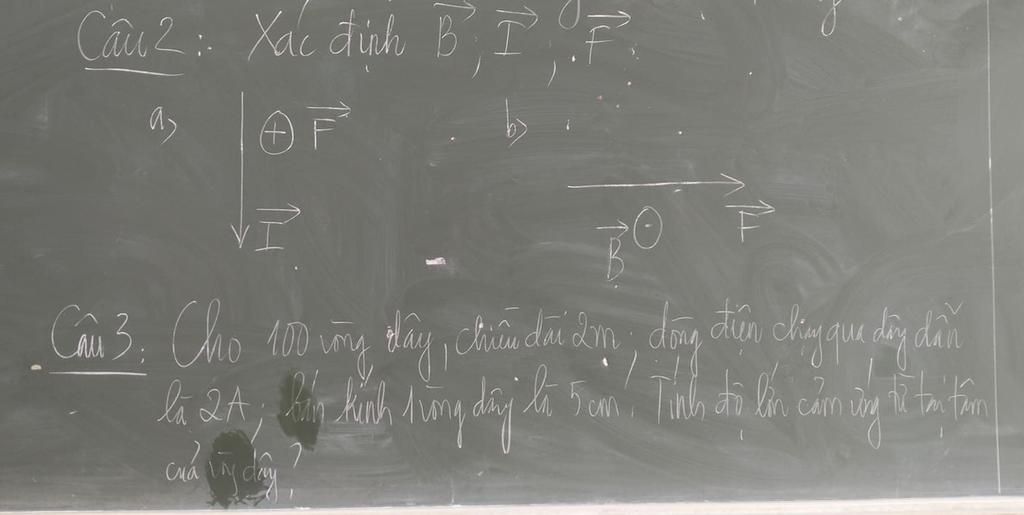 Câu 2: Xác định B⃗; I⃗; F⃗.
a, ⊕ F⃗ b,
I⃗ B⃗ ⊙ F⃗
Câu 3: Cho 100 vòng dây, chiều dài 2m; dòng điện chạy qua dây dẫn
là 2A; bán kính 1 vòng dây là 5 cm. Tính độ lớn cảm ứng từ tại tâm
của dây?